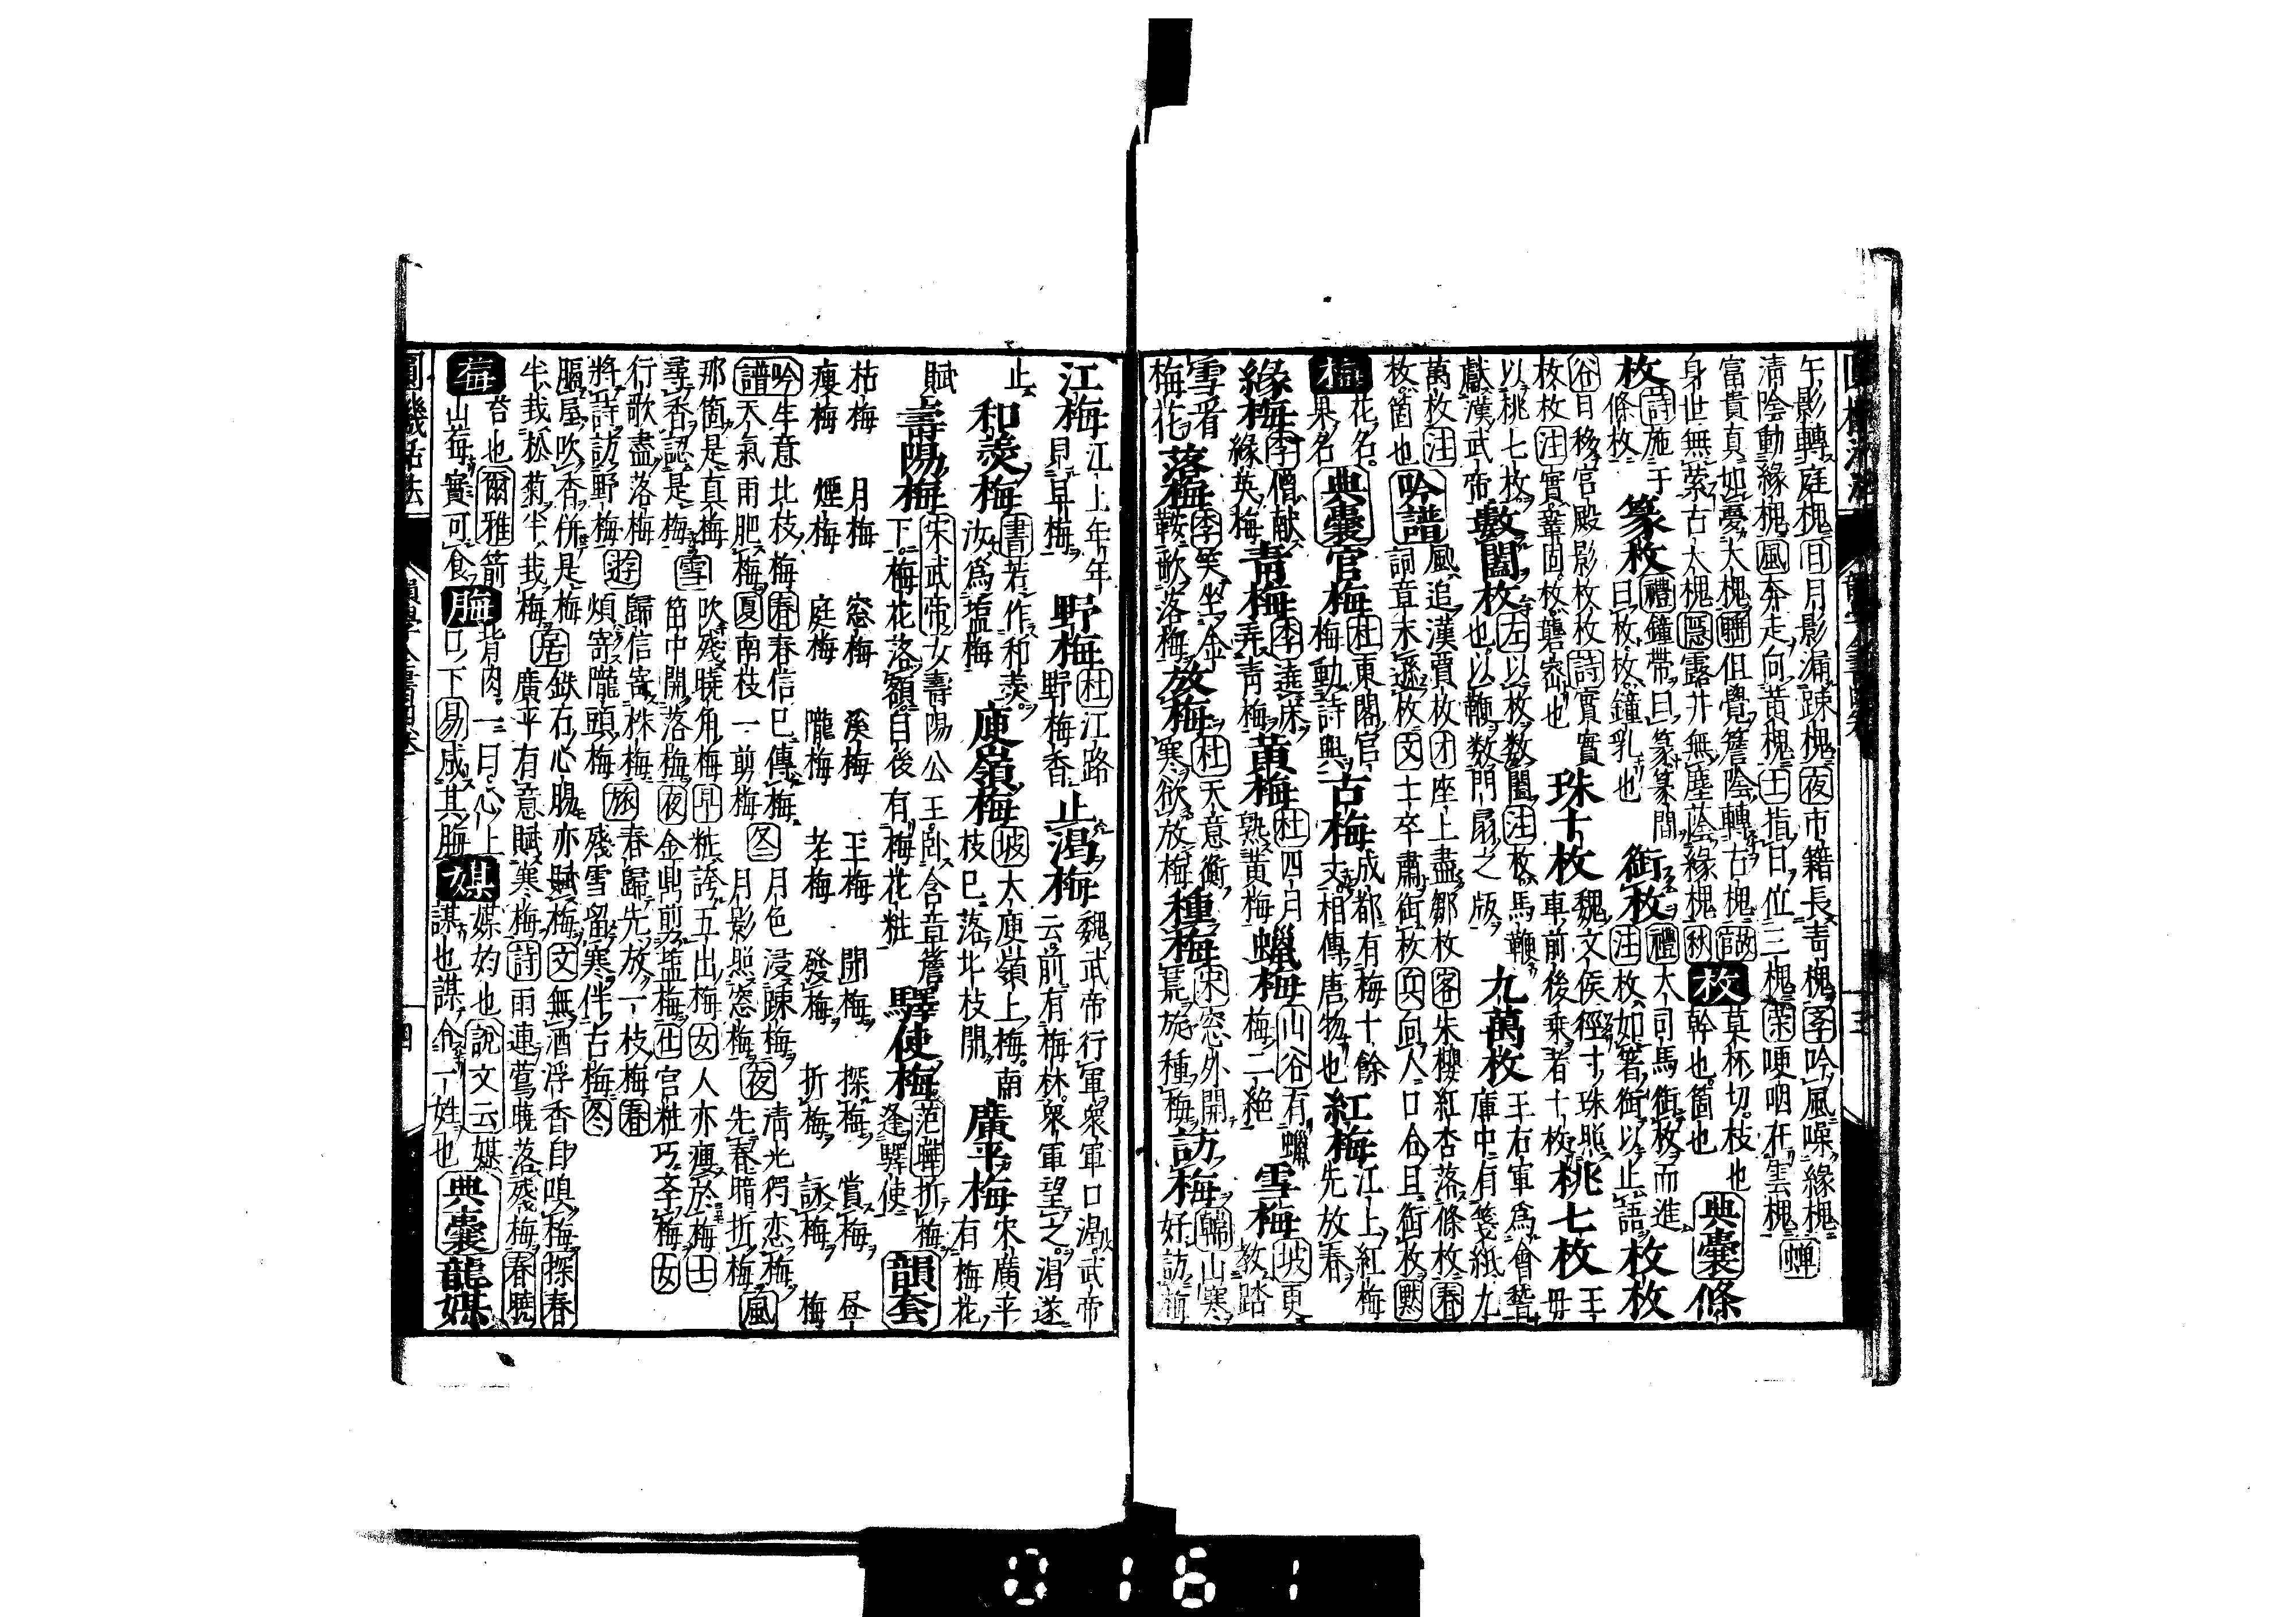 午影轉庭槐日月影漏踈槐夜市籍長青槐客吟風噪緣槐
清陰動緣槐風奔走向黄槐士指日位三槐榮哽咽在雲槐蟬
富貴真如夢大槐但覺簷陰轉古槐
身世無縈古太槐隱露井無塵蔭緣槐秋
枚莫杯切枝也
幹也箇也
典囊條
枚詩施于
條枚
篆枚禮鐘帶曰篆篆間
曰枚枚鐘乳也
銜枚禮大司馬銜枚而進
注枚如箸銜以止語
枚枚
谷日移宫殿影枚枚詩實實
枚枚注實鞏固枚礱密也
珠十枚魏文侯徑寸珠照
車前後乘者十枚
桃七枚王母
以桃七枚
獻漢武帝
數闔枚左以枚数闔注枚馬鞭
也以鞭数門扇之版
九萬枚王右軍為會稽
庫中有箋紙九
萬枚注
枚箇也
吟譜風追漢賈枚才座上盡鄒枚客朱櫻紅杏落條枚春
詞章末遜枚文士卒肅銜枚兵向人口合且銜枚默
梅花名
果名
典囊官梅杜東閣官
梅動詩興
古梅成都有梅十餘
丈相傳唐物也
紅梅江上紅梅
先放春
緣梅李僧献
緣英梅
青梅李遶床
弄青梅
黄梅杜四月
熟黄梅
蠟梅山谷有蠟
梅二絶
雪梅坡更
教踏
雪看
梅花
落梅李笑坐金
鞍歌落梅
放梅杜天意衝
寒欲放梅
種梅宋窓外開
荒旋種梅
訪梅韓山寒
好訪前
江梅江上年年
見早梅
野梅杜江路
野梅香
止渴梅魏武帝行軍衆軍口渴武帝
云前有梅林衆軍望之渴遂
止
和羮梅書若作和羮
汝為塩梅
庾嶺梅坡大庾嶺上梅南
枝已落北枝開
廣平梅宋廣平
有梅花
賦
壽陽梅宋武帝女壽陽公王卧含章簷
下梅花落額自後有梅花粧
驛使梅范曄折梅
逢驛使
韻套
枯梅 月梅 窓梅 溪梅 王梅 開梅 探梅 賞梅 昼梅
瘦梅 煙梅 庭梅 隴梅 老梅 發梅 折梅 詠梅
吟譜生意北枝梅春春信已傳梅冬月色浸踈梅夜清光何恋梅風
天氣雨肥梅夏南枝一剪梅月影照窓梅先春暗折梅
那箇是真梅雪吹殘曉角梅昇粧誇五出梅女人亦瘦於梅士
尋香認是梅笛中開落梅夜金鼎煎塩梅仕宫粧巧妬梅女
行歌盡落梅遊歸信寄株梅旅春歸先放一枝梅春
將詩訪野梅煩寄隴頭梅殘雪留寒伴古梅冬
臨屋吹香併是梅居鉄石心腸亦賦梅文無酒浮香自嗅梅探春
半栽松菊半栽梅廣平有意賦寒梅詩雨連鶯曉落殘梅春曉
莓苔也爾雅箭
山莓實可食
脢背肉一曰心上
口下易咸其脢
媒媒妁也説文云媒
謀也謀合二姓也
典囊龍媒
圓機活法
韻學全書四卷
四
0161